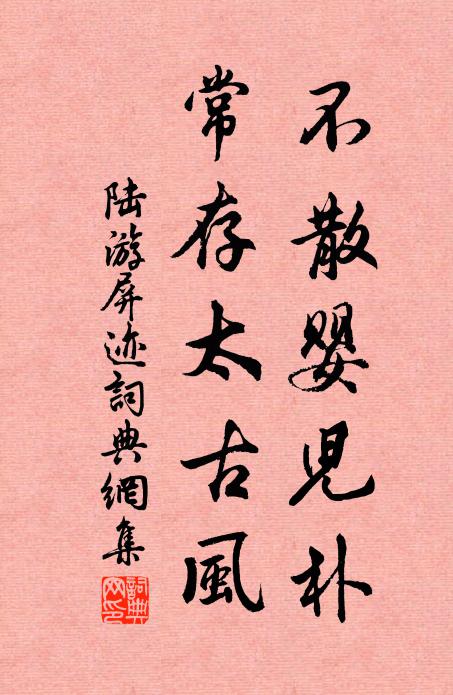 不散嬰兒朴
常存太古風
陸游屏迹詞典網集
詞典網印